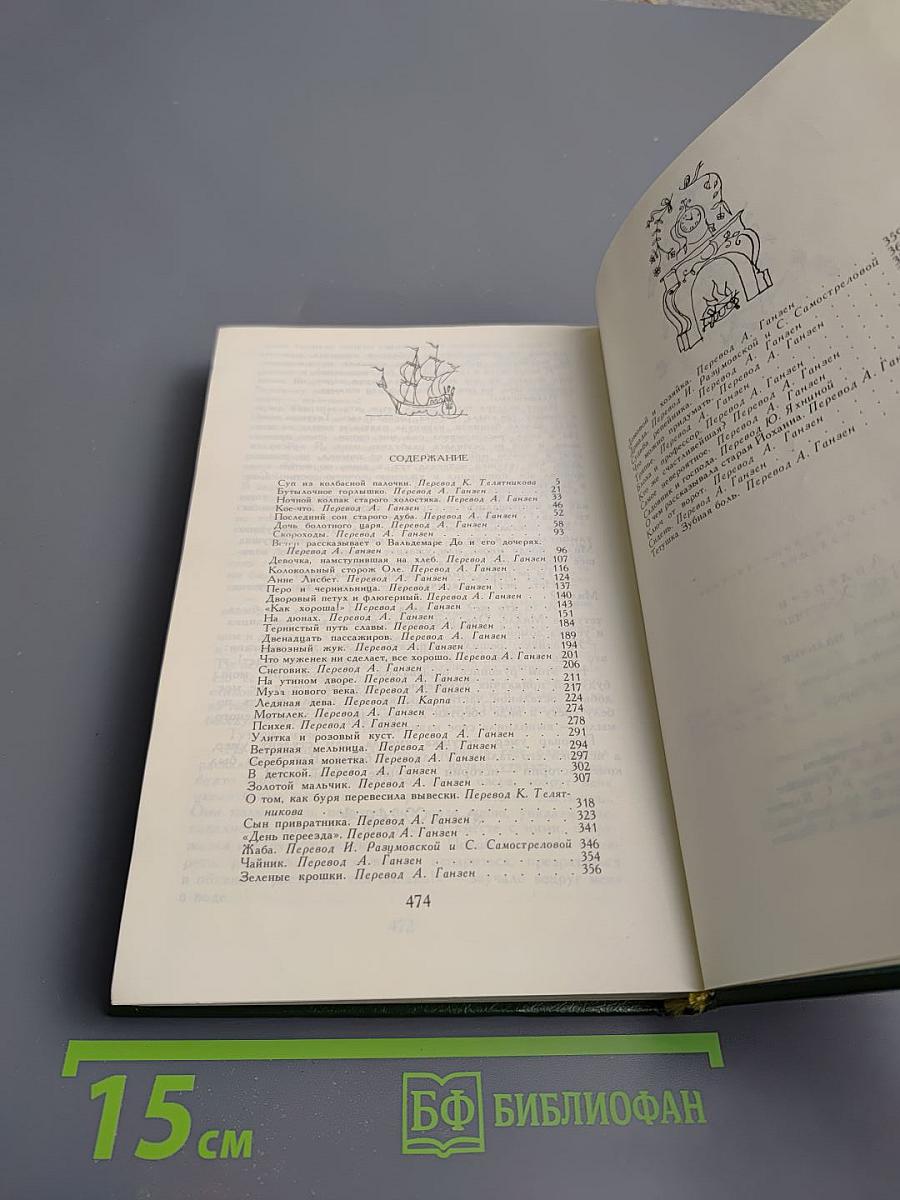 СОДЕРЖАНИЕ
Суп из колбасной палочки. Перевод К. Телятникова 5
Бутылочное горлышко. Перевод А. Ганзен 21
Ночной колпак старого холостяка. Перевод А. Ганзен 33
Кое-что. Перевод А. Ганзен 46
Последний сон старого дуба. Перевод А. Ганзен 52
Дочь болотного царя. Перевод А. Ганзен 58
Скороходы. Перевод А. Ганзен 93
Ветер рассказывает о Вальдемаре До и его дочерях.
Перевод А. Ганзен 96
Девочка, наступившая на хлеб. Перевод А. Ганзен 107
Колокольный сторож Оле. Перевод А. Ганзен 116
Анне Лисбет. Перевод А. Ганзен 124
Перо и чернильница. Перевод А. Ганзен 137
Дворовый петух и флюгерный. Перевод А. Ганзен 140
«Как хороша!» Перевод А. Ганзен 143
На дюнах. Перевод А. Ганзен 151
Тернистый путь славы. Перевод А. Ганзен 184
Двенадцать пассажиров. Перевод А. Ганзен 189
Навозный жук. Перевод А. Ганзен 194
Что муженек ни сделает, все хорошо. Перевод А. Ганзен 201
Снеговик. Перевод А. Ганзен 206
На утином дворе. Перевод А. Ганзен 211
Муза нового века. Перевод А. Ганзен 217
Ледяная дева. Перевод П. Карпа 224
Мотылек. Перевод А. Ганзен 274
Психея. Перевод А. Ганзен 278
Улитка и розовый куст. Перевод А. Ганзен 291
Ветряная мельница. Перевод А. Ганзен 294
Серебряная монетка. Перевод А. Ганзен 297
В детской. Перевод А. Ганзен 302
Золотой мальчик. Перевод А. Ганзен 307
О том, как буря перевесила вывески. Перевод К. Телят-
никова 318
Сын привратника. Перевод А. Ганзен 323
«День переезда». Перевод А. Ганзен 341
Жаба. Перевод И. Разумовской и С. Самостреловой 346
Чайник. Перевод А. Ганзен 354
Зеленые крошки. Перевод А. Ганзен 356
474
и хозяйка. Перевод А. Ганзен
Перевод И. Разумовской и С. Самостреловой
репейника. Перевод А. Ганзен
можно придумать. Перевод А. Ганзен
Перевод А. Ганзен
и профессор. Перевод А. Ганзен
счастливейшая? Перевод А. Ганзен
невероятное. Перевод А. Ганзен
Садовник и господа. Перевод Ю. Яхниной
О чем рассказывала старая Йоханна. Перевод А.
Ключ от ворот. Перевод А. Ганзен
Сидень. Перевод А. Ганзен
Тетушка Зубная боль. Перевод А. Ганзен
15 см
БФ БИБЛИОФАН